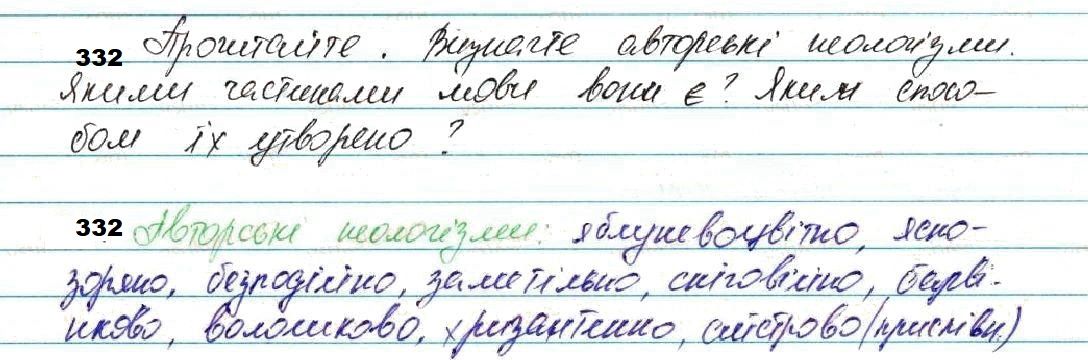 332 Прочитайте. Визначте авторські неологізми.
Якими частинами мови вони є? Яким спосо-
бом їх утворено?
332 Авторські неологізми: яблуневоцвітно, ясно-
зоряно, безподійно, заметільно, сніговійно, барві-
нково, волошково, хризантемно, айстрово (прислівн.)